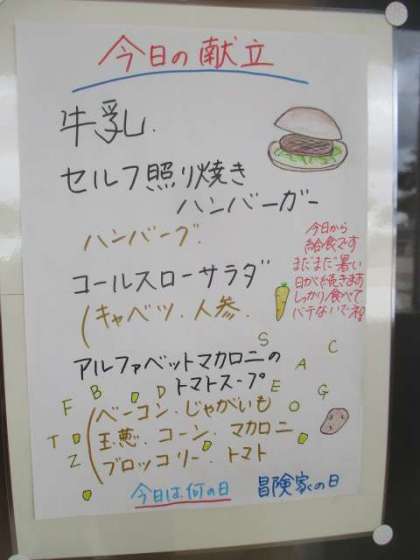 今日の献立
牛乳.
セルフ照り焼き
ハンバーガー
ハンバーグ.
コールスローサラダ
(キャベツ.人参.
今日から
給食です
まだまだ暑い
日がく続きます
しっかり食べて
バテないで
アルファベットマカロニの
トマトスープ
S C
A
F B D E G
O
T
Z
(ベーコン.じゃがいも
玉葱.コーン.マカロニ
ブロッコリー.トマト
今日は何の日 冒険家の日